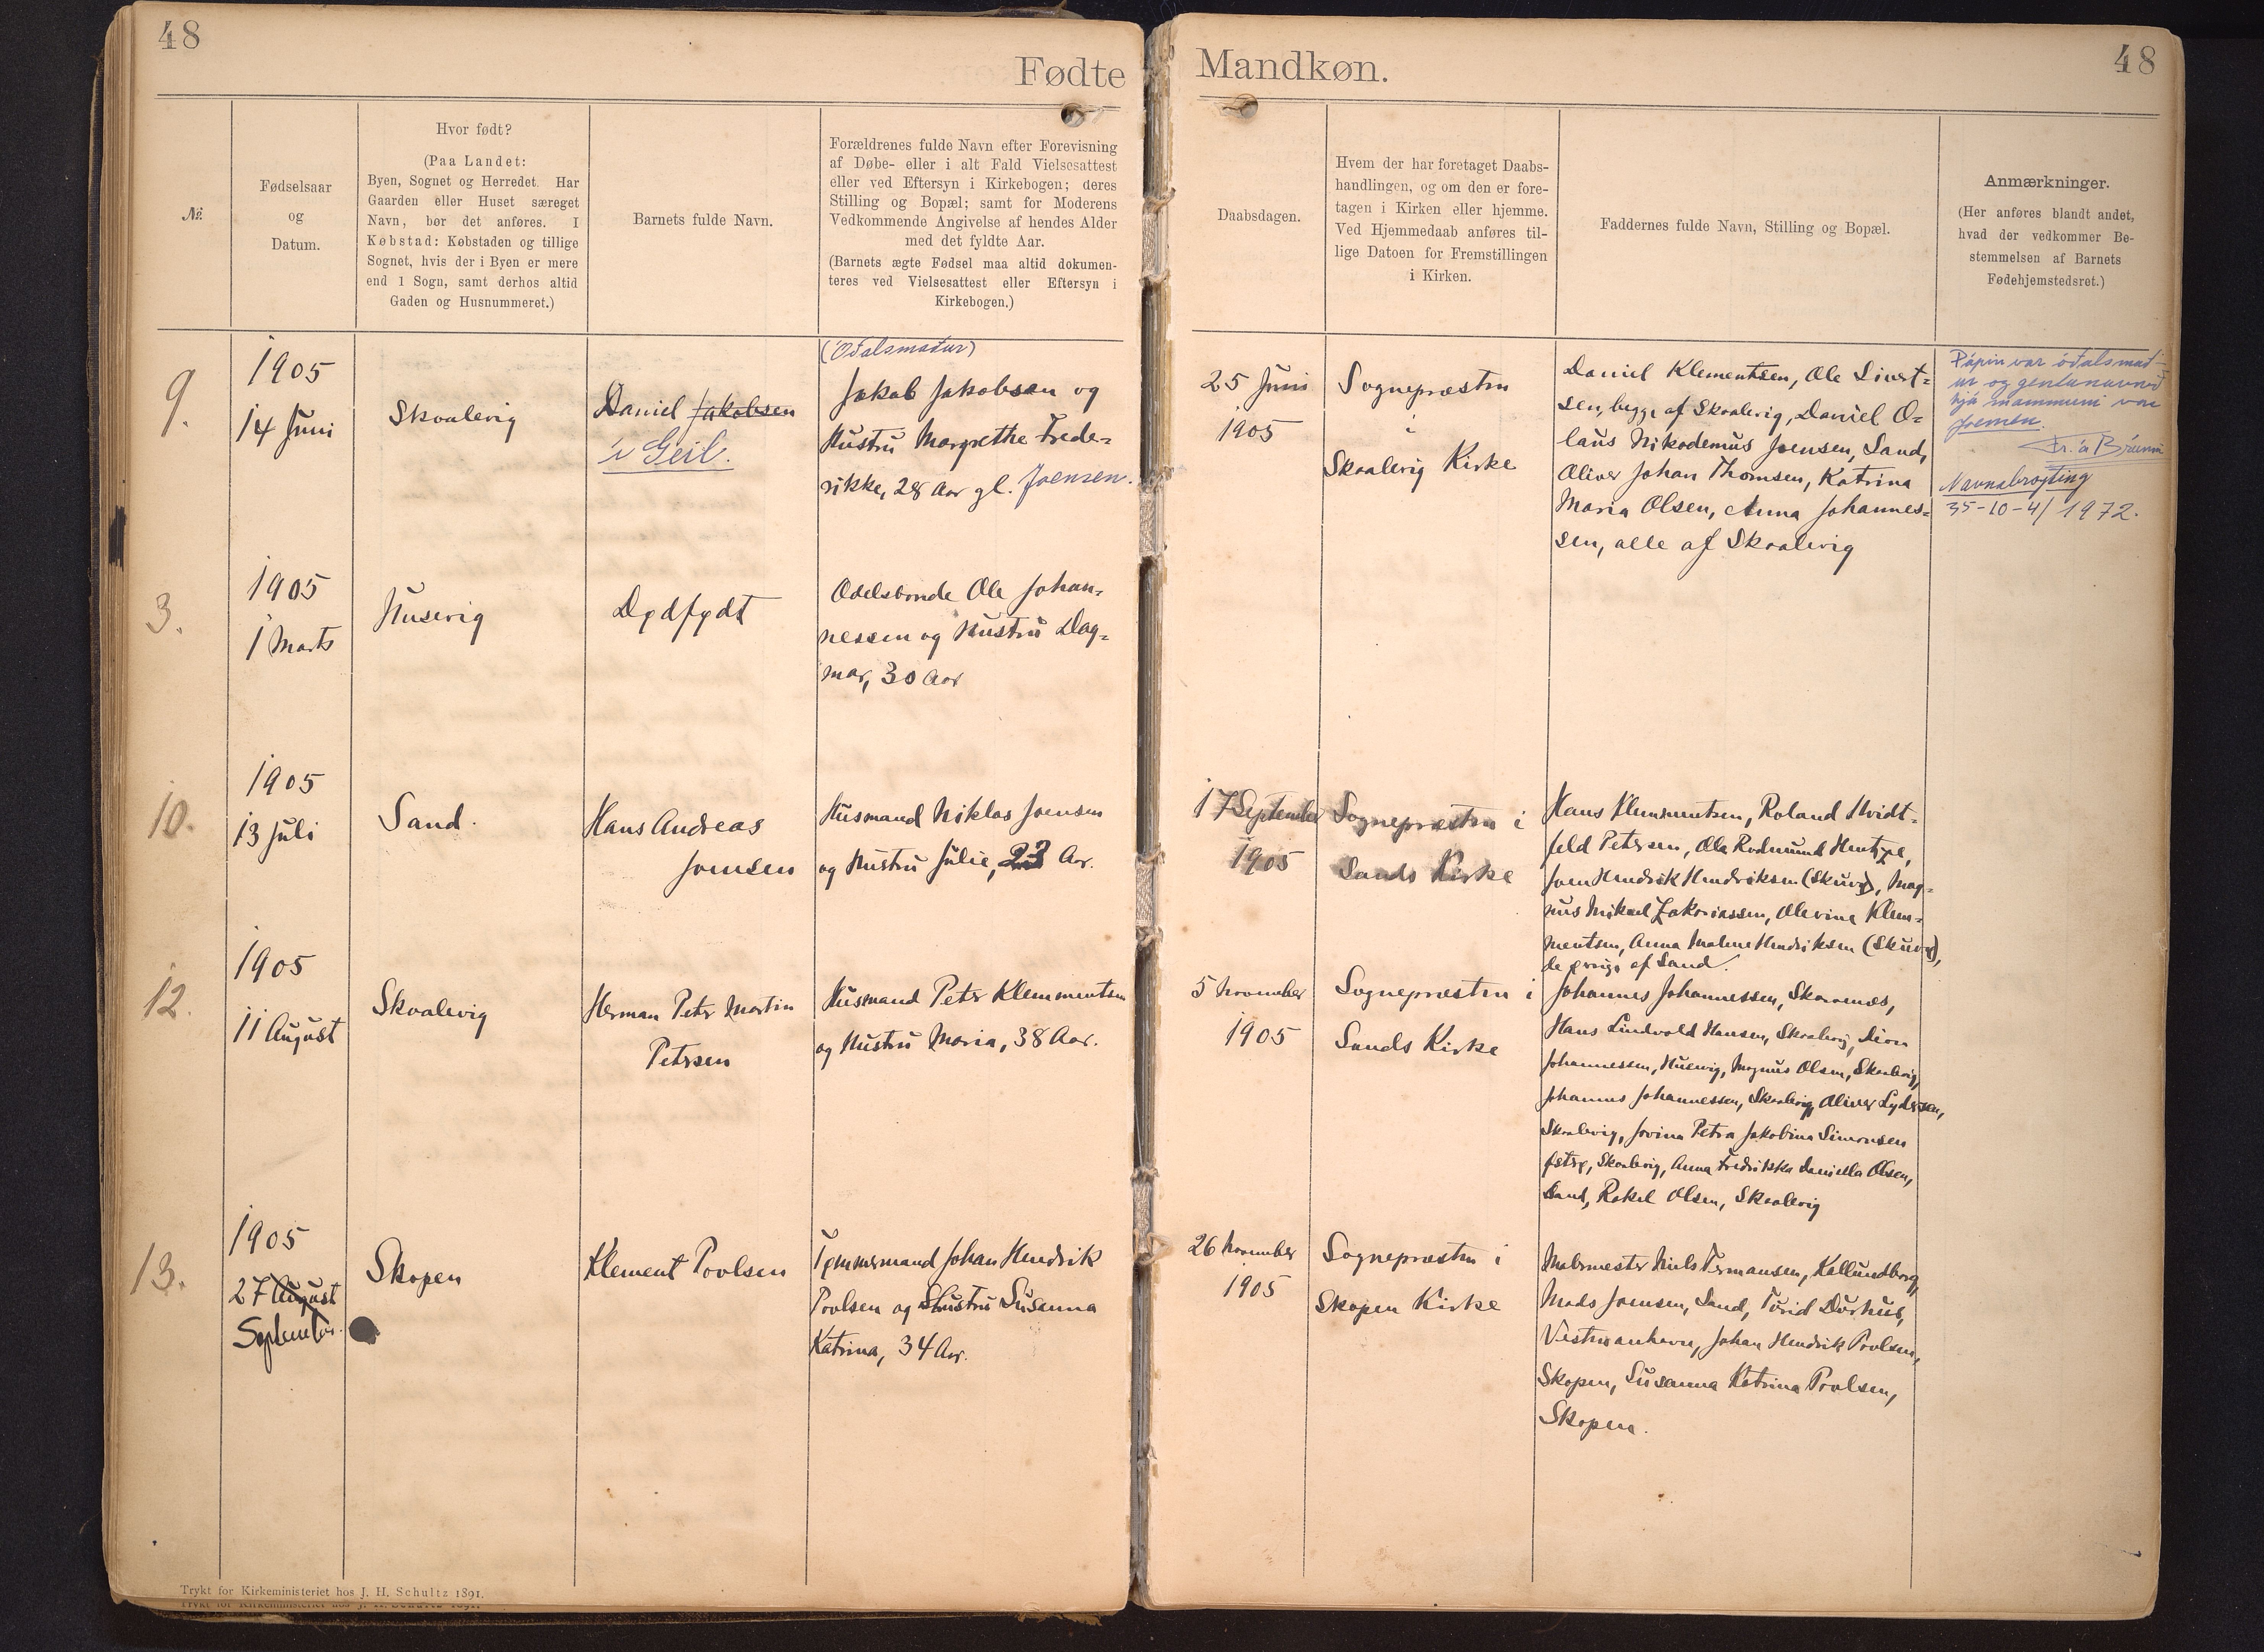 48
Fødte
Nº.
Fødselsaar
og
Datum.
Hvor født?
(Paa Landet:
Byen, Sognet og Herredet. Har
Gaarden eller Huset særeget
Navn, bør det anføres. I
Købstad: Købstaden og tillige
Sognet, hvis der i Byen er mere
end 1 Sogn, samt derhos altid
Gaden og Husnummeret.)
Barnets fulde Navn.
Forældrenes fulde Navn efter Forevisning
af Døbe- eller i alt Fald Vielsesattest
eller ved Eftersyn i Kirkebogen; deres
Stilling og Bopæl; samt for Moderens
Vedkommende Angivelse af hendes Alder
med det fyldte Aar.
(Barnets ægte Fødsel maa altid dokumen-
teres ved Vielsesattest eller Eftersyn i
Kirkebogen.)
9.
1905
14 Juni
Skaalevig
Daniel Jakobsen
í Geil.
(Óðalsmaður)
Jakob Jakobsen og
Hustru Margrethe Frede=
rikke, 28 Aar gl. Joensen.
3.
1905
1 Marts
Husevig
Dødfødt
Odelsbonde Ole Johan=
nessen og Hustru Dag=
mar, 30 Aar
10.
1905
13 Juli
Sand.
Hans Andreas
Joensen
Husmand Niklas Joensen
og Hustru Julie, 23 Aar.
12.
1905
11 August
Skaalevig
Herman Peter Martin
Petersen
Husmand Peter Klemmentsen
og Hustru Maria, 38 Aar.
13.
1905
27 August
September.
Skopen
Klement Poulsen
Tømmermand Johan Hendrik
Poulsen og Hustru Susanna
Katrina, 34 Aar.
Trykt for Kirkeministeriet hos J. H. Schultz 1891.
Mandkøn.
48
Daabsdagen.
Hvem der har foretaget Daabs-
handlingen, og om den er fore-
tagen i Kirken eller hjemme.
Ved Hjemmedaab anføres til-
lige Datoen for Fremstillingen
i Kirken.
Faddernes fulde Navn, Stilling og Bopæl.
Anmærkninger.
(Her anføres blandt andet,
hvad der vedkommer Be-
stemmelsen af Barnets
Fødehjemstedsret.)
25 Juni
1905
Sognepræsten
i
Skaalevig Kirke
Daniel Klementsen, Ole Sivert=
sen, begge af Skaalevig, Daniel O=
laus Nikodemus Joensen, Sand,
Oliver Johan Thomsen, Katrina
Maria Olsen, Anna Johannes=
sen, alle af Skaalevig
Pápin var óðalsmað-
ur og gentunavnið
hjá mammuni var
Joensen.
Fr. á Brúnni
Navnabroyting
35-10-4/1972.
17 September
1905
Sognepræsten i
Sands Kirke
Hans Klemmentsen, Roland Hvidt=
feld Petersen, Ole Rodmund Hentze,
Joen Hendrik Hendriksen (Skuvø), Mag=
nus Mikael Zakariassen, Olevina Klem=
mentsen, Anna Malene Hendriksen (Skuvø),
de øvrige af Sand.
5 November
1905
Sognepræsten i
Sands Kirke
Johannes Johannessen, Skarvanes,
Hans Lindvald Hansen, Skaalevig,
Johannessen, Husevig, Magnus Olsen, Skaalevig,
Johannes Johannessen, Skaalevig, Oliver Lydersen,
Skaalevig, Jovina Petra Jakobina Simonsen
Skaalevig, Anna Fredrikka Daniella Olsen,
Sand, Rakel Olsen, Skaalevig
26 November
1905
Sognepræsten i
Skopen Kirke
Malermester Niels Termansen, Kallundborg,
Mads Joensen, Sand, Turid Durhus,
Vestmanhavn, Johan Hendrik Poulsen,
Skopen, Susanna Katrina Poulsen,
Skopen.